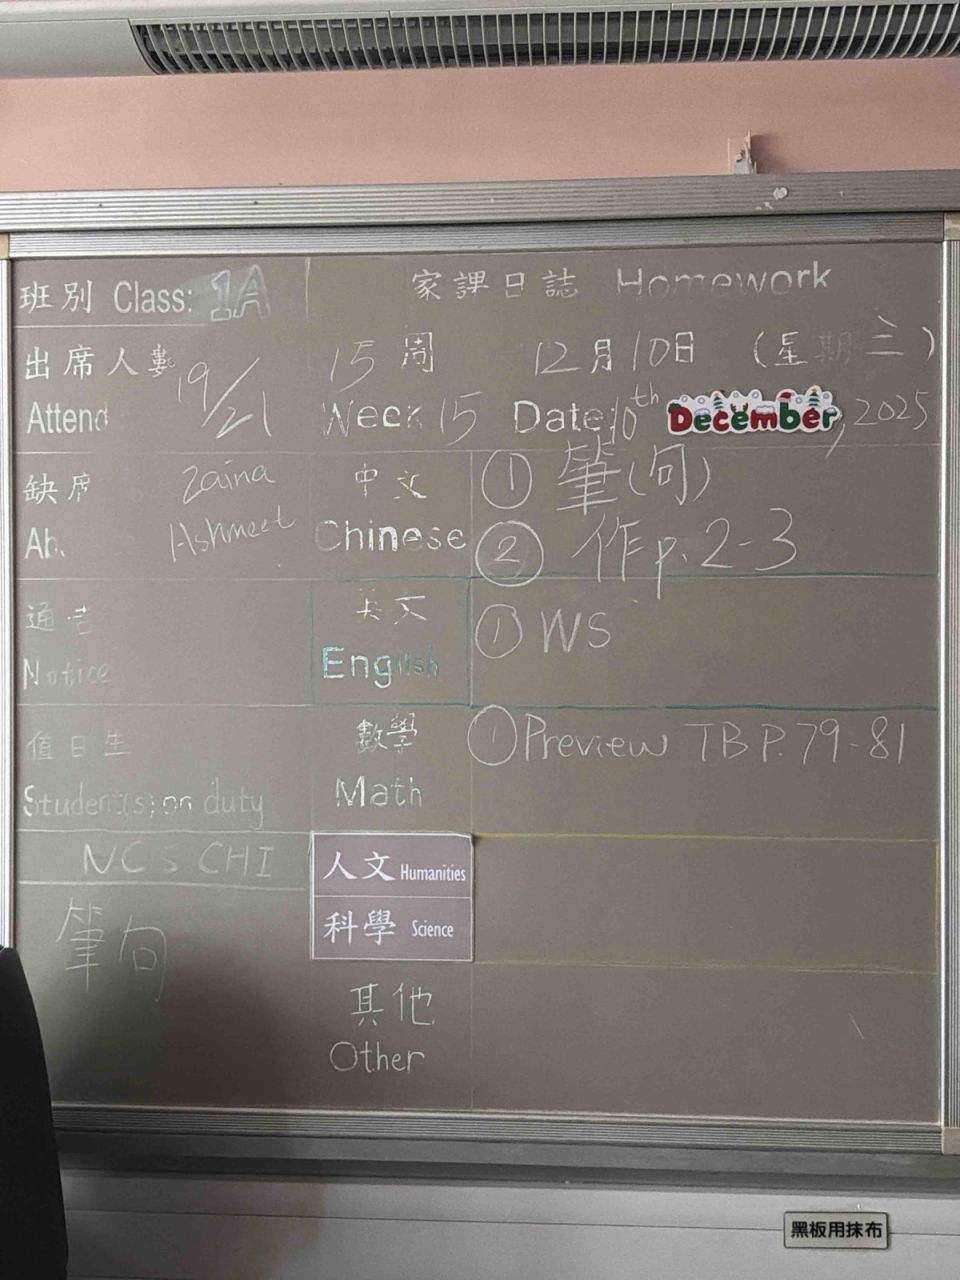 班別 Class: 1A
家課日誌 Homework
出席人數 19/21
Attend
15周
Week 15
12月10日 (星期三)
Date: 10th December, 2025
缺席 Zaina
Ab. Ashmeet
中文
Chinese
① 筆(句)
② 作p.2-3
通告
Notice
英文
English
① WS
值日生
Student(s) on duty
數學
Math
① Preview TB P.79-81
NCS CHI
筆句
人文 Humanities
科學 Science
其他
Other
黑板用抹布